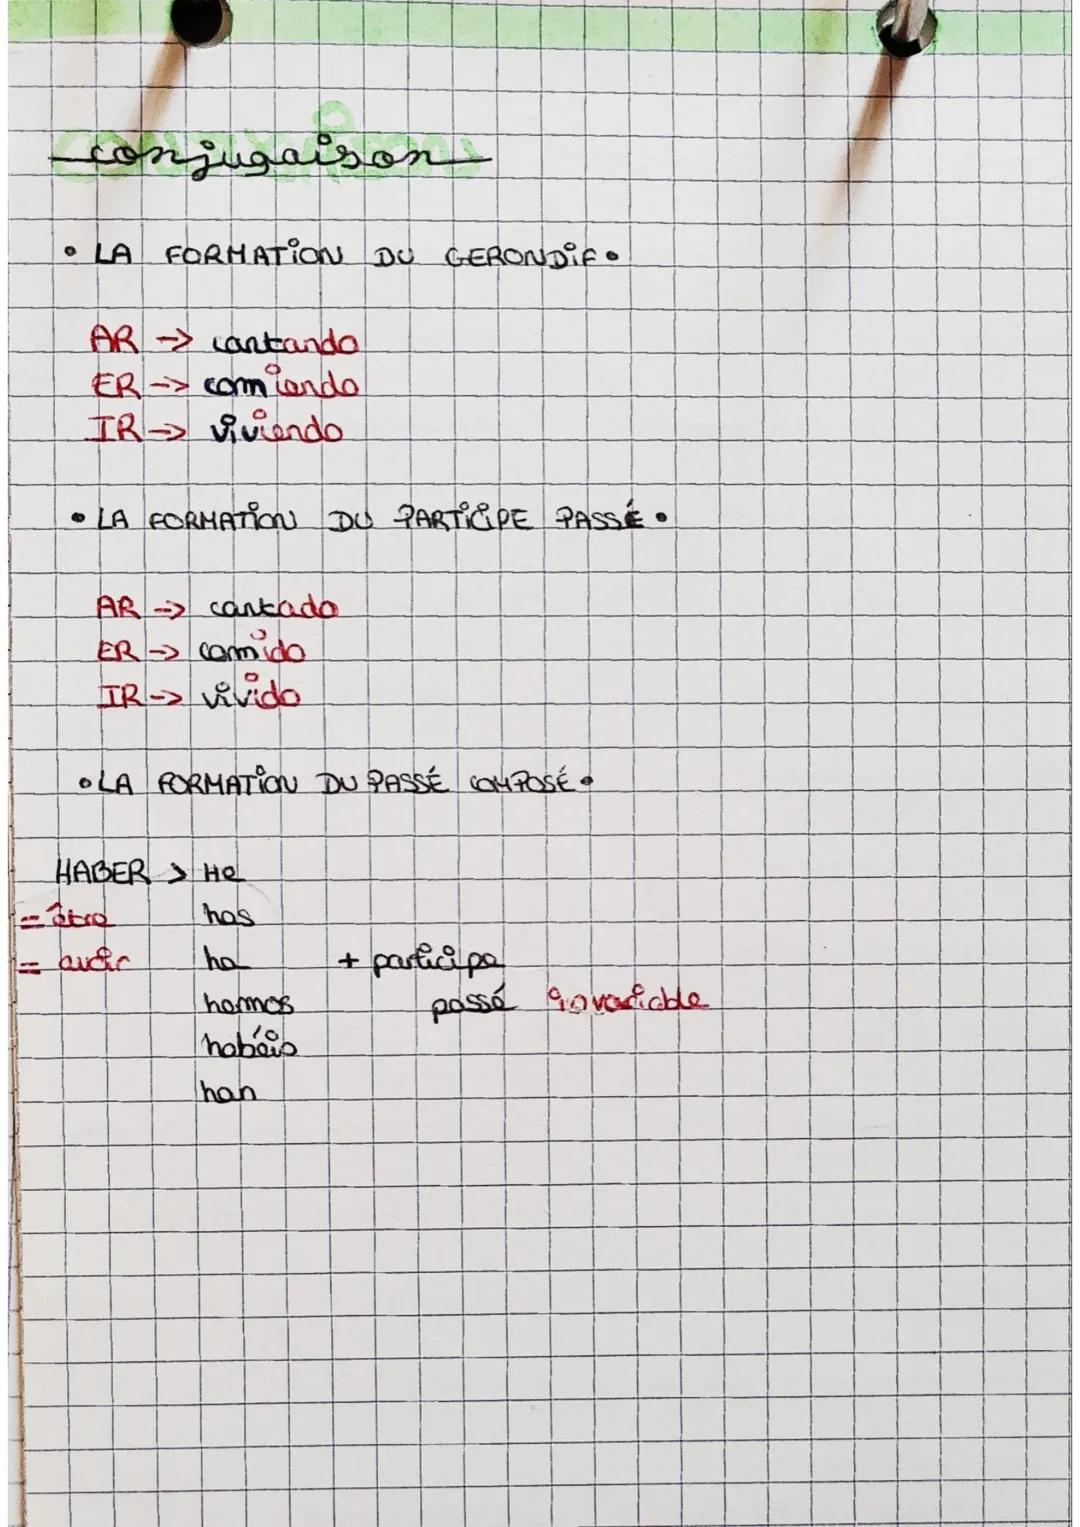 conjugaison
• LA FORMATION DU GERONDIF •
AR -> cantando
ER -> comiendo
IR -> viviendo
• LA FORMATION DU PARTICIPE PASSÉ •
AR -> cantado
ER -> comido
IR -> vivido
• LA FORMATION DU PASSÉ COMPOSÉ •
HABER > He
= être has
= avoir ha + participe
hemos passé invariable
habéis
han